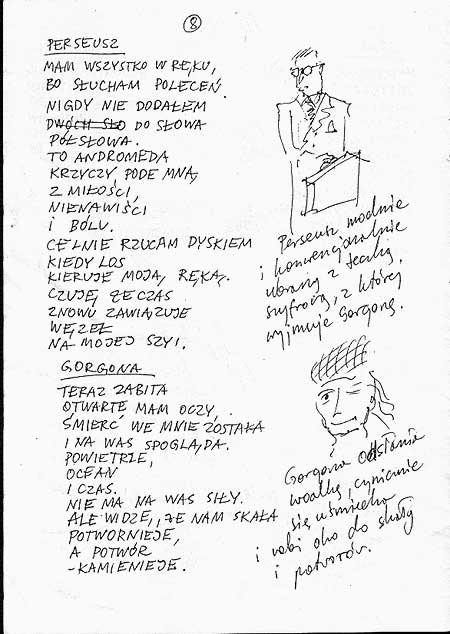 8
PERSEUSZ
MAM WSZYSTKO W RĘKU,
BO SŁUCHAM POLECEŃ.
NIGDY NIE DODAŁEM
DWÓCH SŁO DO SŁOWA
PÓŁSŁOWA.
TO ANDROMEDA
KRZYCZY, PODE MNĄ,
Z MIŁOŚCI,
NIENAWIŚCI
I BÓLU.
CELNIE RZUCAM DYSKIEM
KIEDY LOS
KIERUJE MOJĄ RĘKĄ.
CZUJĘ, ŻE CZAS
ZNOWU ZAWIĄZUJE
WĘZEŁ
NA MOJEJ SZYI.
Perseusz modnie
i konwencjonalnie
ubrany z teczką
szyfrową, z której
wyjmuje Gorgonę.
GORGONA
TERAZ ZABITA
OTWARTE MAM OCZY,
ŚMIERĆ WE MNIE ZOSTAŁA
I NA WAS SPOGLĄDA.
POWIETRZE,
OCEAN
I CZAS.
NIE MA NA WAS SIŁY.
ALE WIDZĘ, ŻE NAM SKAŁA
POTWORNIEJE,
A POTWÓR
-KAMIENIEJE.
Gorgona odsłania
woalkę, cynicznie
się uśmiecha
i robi oko do skały
i potworów.